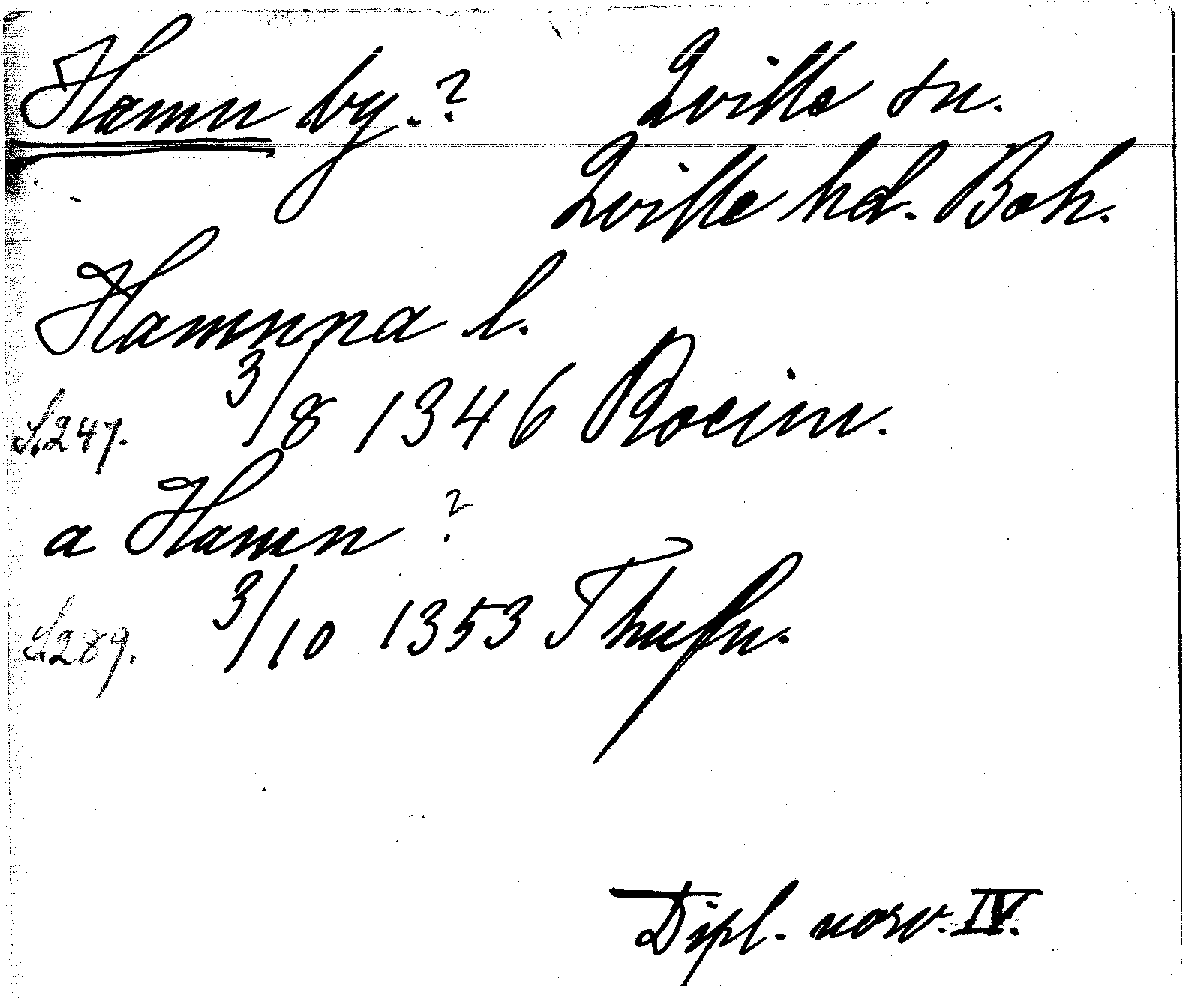 Hamn by.? Qville sn.
Qville hd. Boh.
Hamnna l.
S.247. 3/8 1346
a Hamn ?
S.289. 3/10 1353
Dipl. norv. IV.